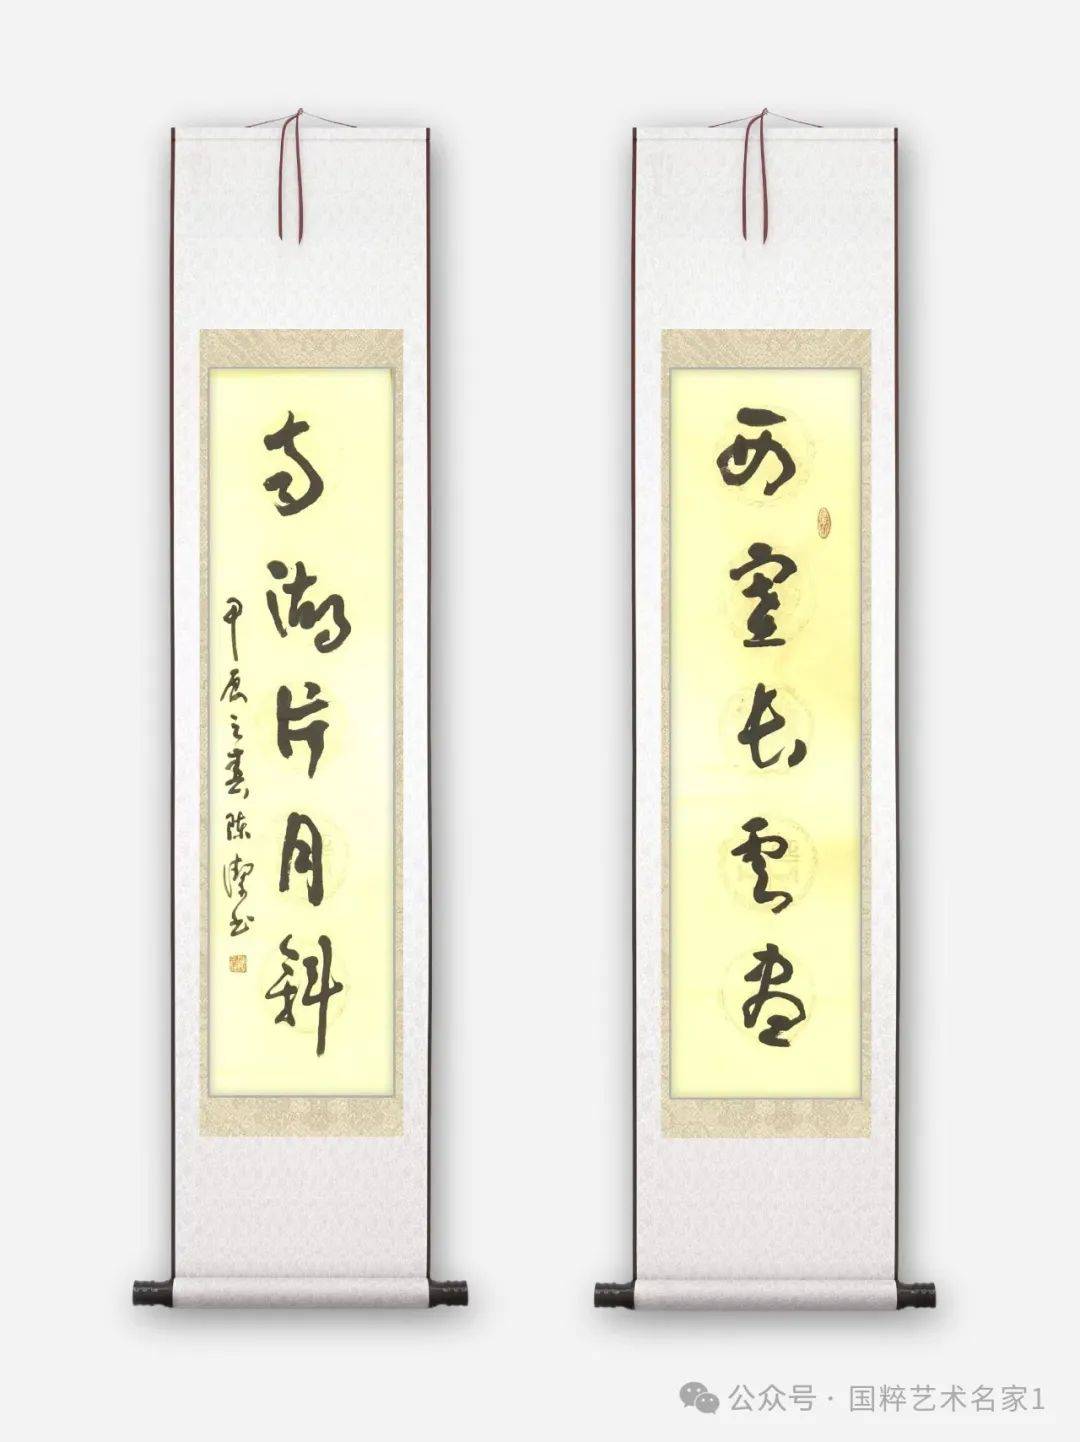 西塞長雲盡
南湖片月斜
甲辰之春陈潔书
公众号·国粹艺术名家1